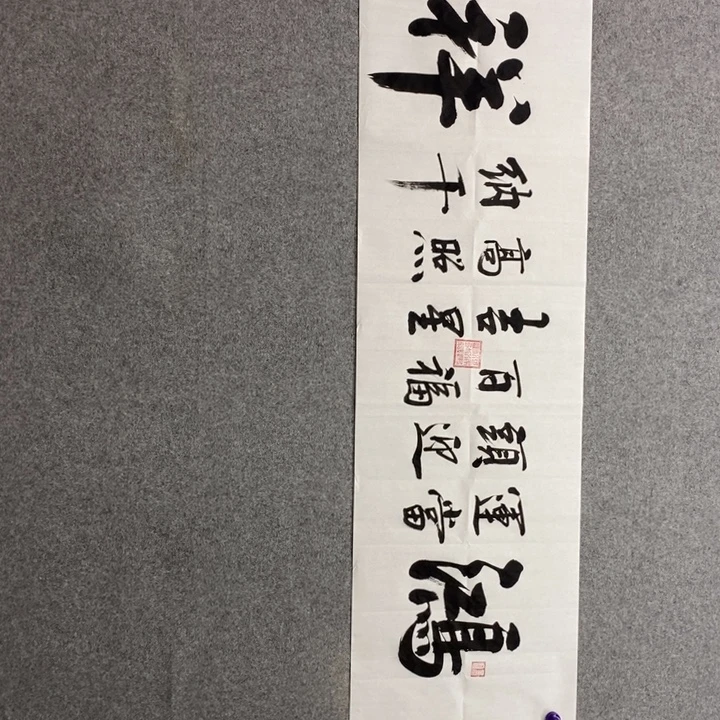 鴻
運當
頭迎
百福
吉星
高照
納千
祥